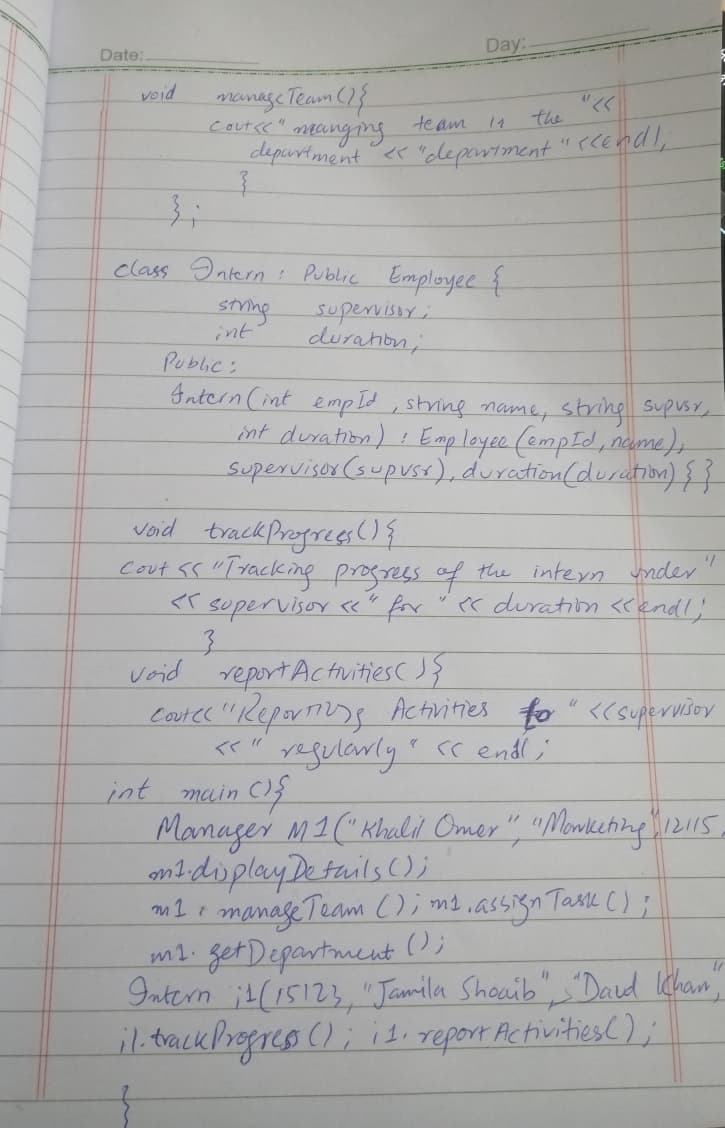 Date:
Day:
void manageTeam(){
cout<<"manging team in the "<<
department << "department" <<endl;
}
};
class Intern : Public Employee {
string supervisor;
int duration;
Public:
Intern(int empId, string name, string supvsr,
int duration) : Employee(empId, name),
supervisor(supvsr), duration(duration) { }
void trackProgress(){
Cout << "Tracking progress of the intern under"
<< supervisor <<" for " << duration <<endl;
}
void reportActivities(){
cout<<"Reporting Activities to " <<supervisor
<<" regularly" << endl;
int main(){
Manager M1("Khalil Omer", "Marketing", 12115,
m1.displayDetails();
m1. manageTeam(); m1.assignTask();
m1. getDepartment();
Intern i1(15123, "Jamila Shoaib", "Daud Khan",
i1.trackProgress(); i1. reportActivities();
}